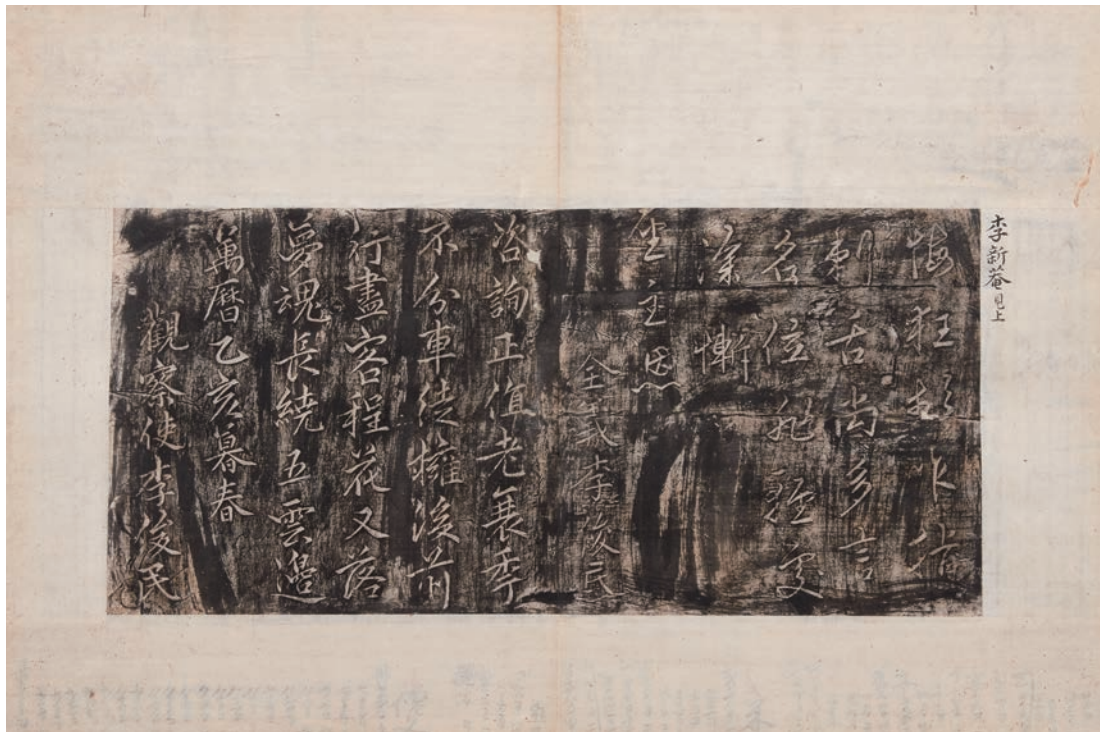 李新菴見上
悔狂起咋指
剌舌尚多言
名位非輕處
深慚
座主恩
全義李俊民
咨詢正值老衰季
不分車徒擁後前
行盡客程花又落
夢魂長繞五雲邊
萬曆乙亥暮春
觀察使李俊民